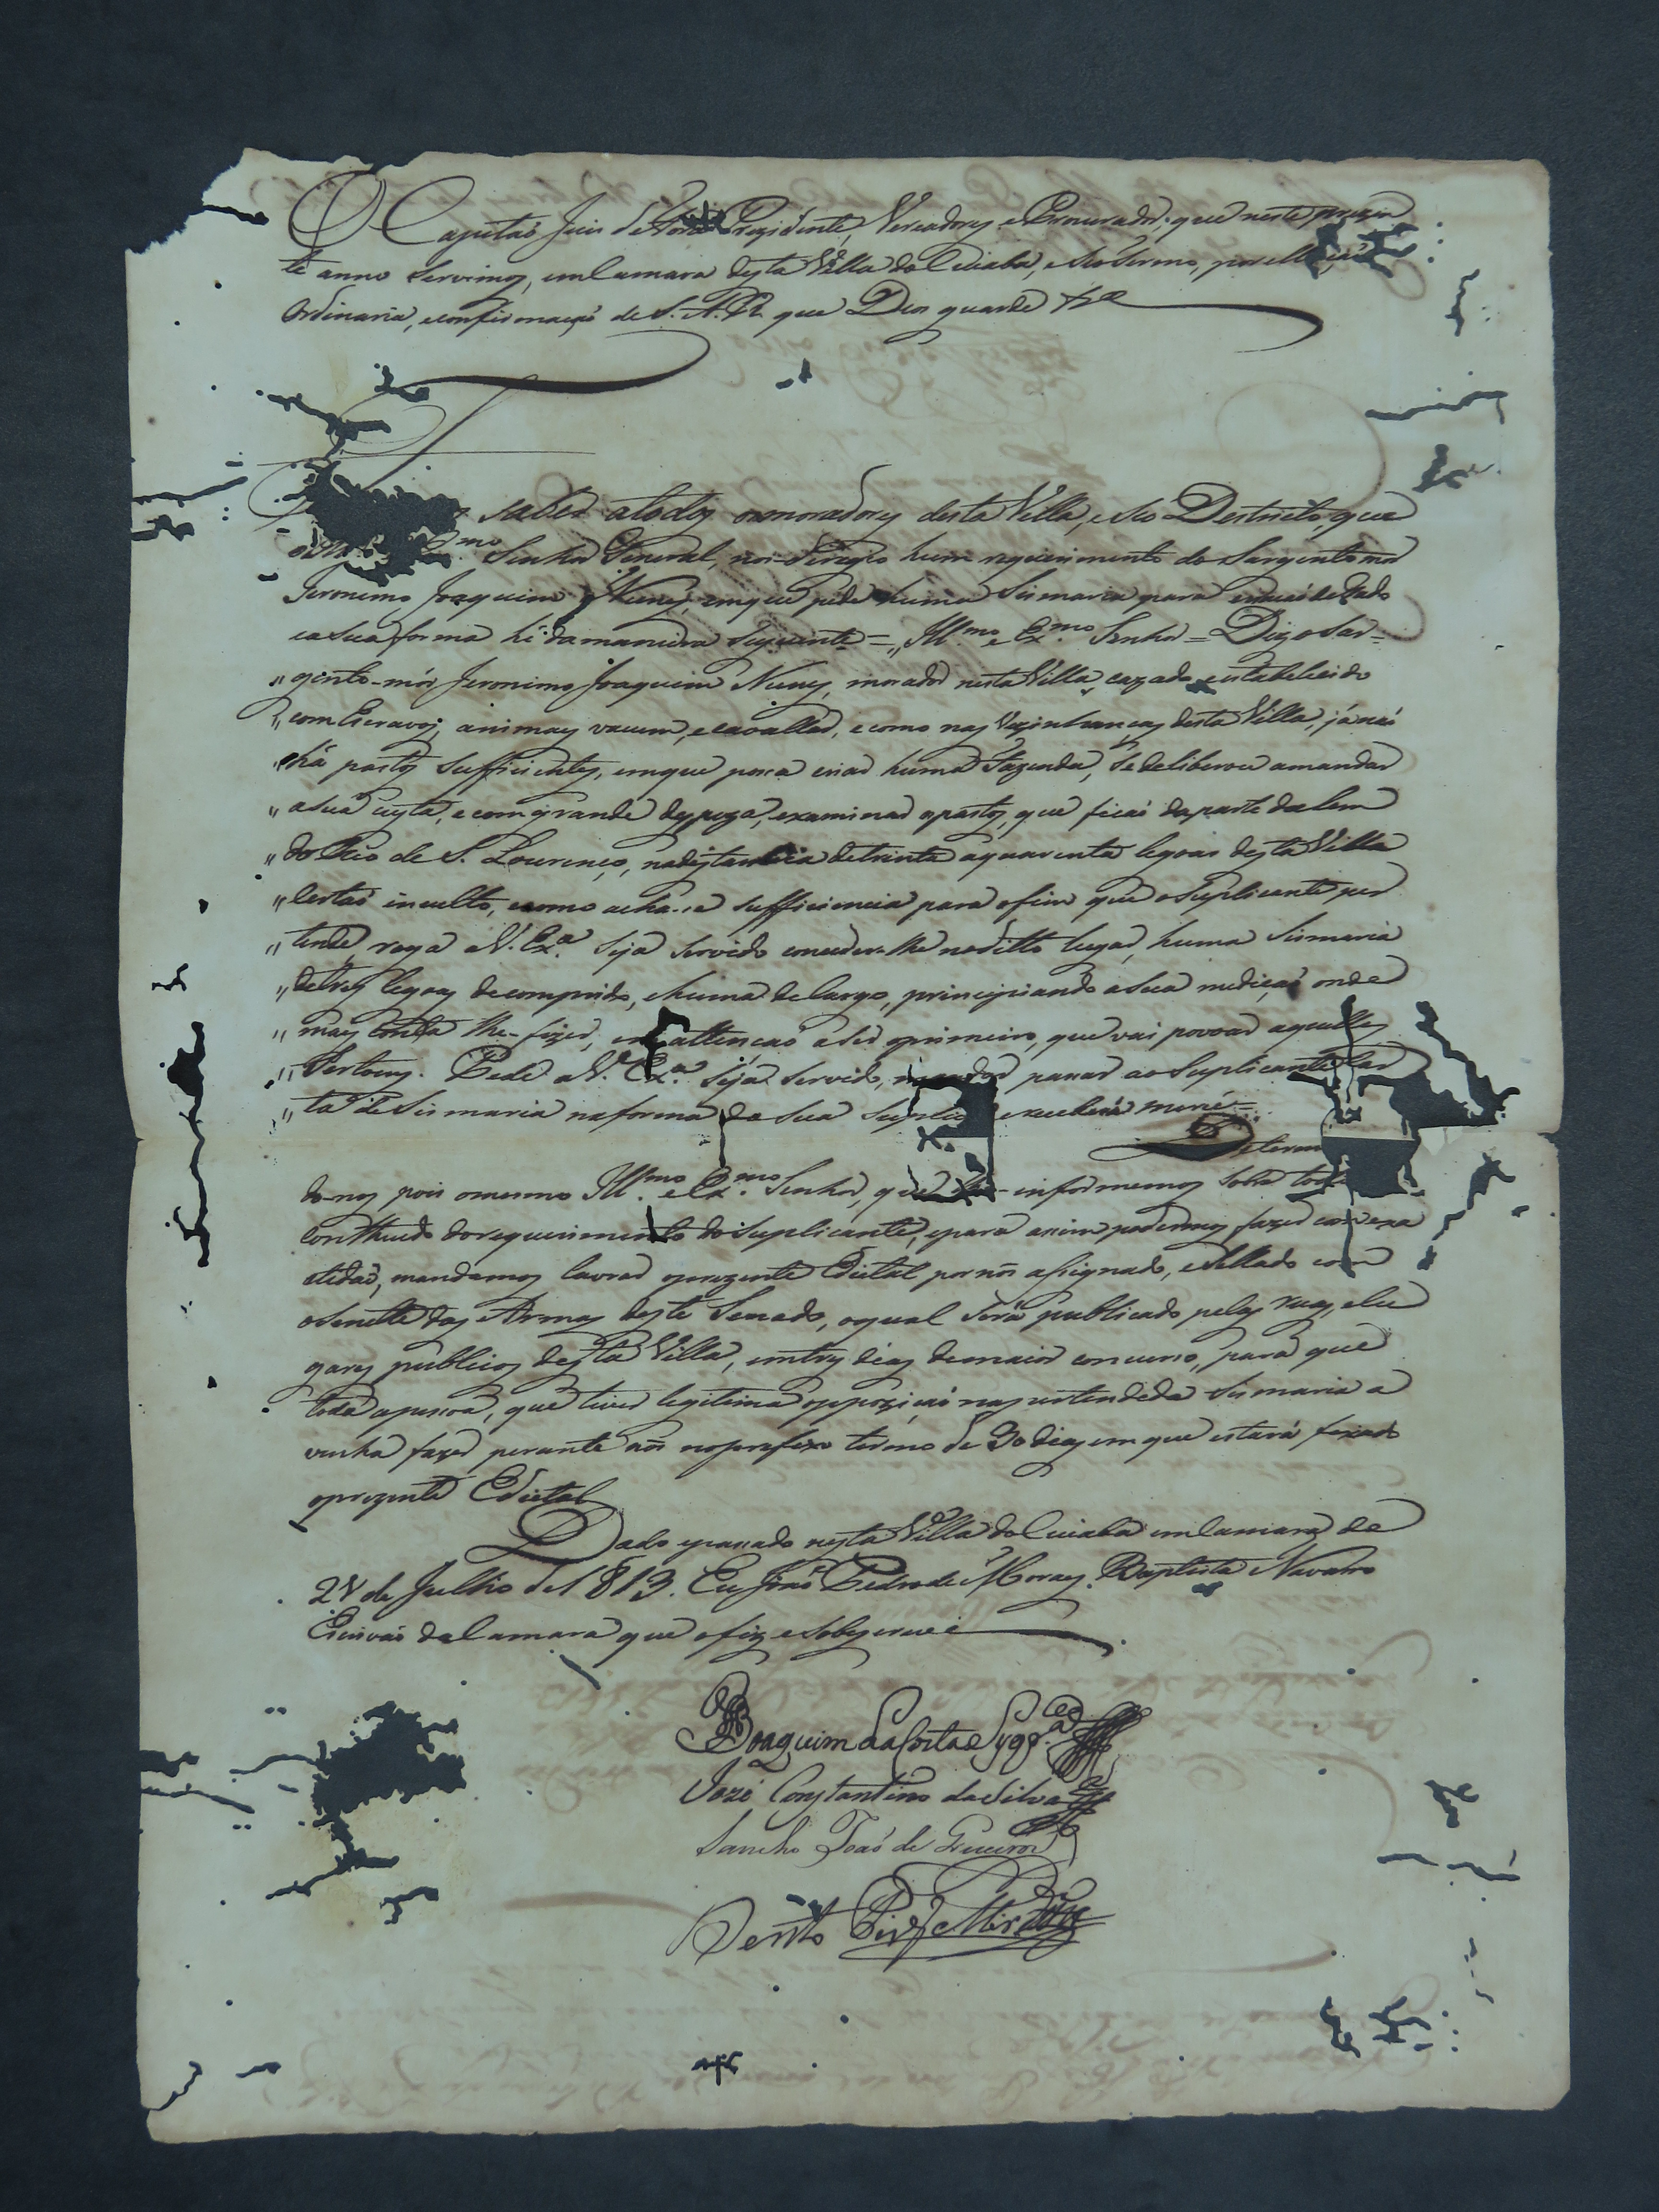 O Capitaó Juis de Fora Prezidente, Vereadores e Procurador, que neste prezen
te anno servimos, em Camara desta Villa do Cuiaba, e seo termo, por elleiçaõ
Ordinaria, e confirmaçaõ de S. A. R. que Deos guarde &ª
saber a todos os moradores desta Villa, e seo Destricto, que
mo Senhor General, nos deregio hum requerimento do Sargento mor
Jeronimo Joaquim Nunes, em que pede huma Sismaria para criacaõ de Gado
e a sua forma hé da maneira seguinte = „ Illmo. e Exmo. Senhor = Diz o Sar=
„ gento-mór Jeronimo Joaquim Nunes, morador nesta Villa, cazado, e estabelecido
„ com Escravos, animaes vacum, e cavallar, e como nas vezinhanças desta Villa, já naõ
„ há pastos sufficientes, em que possa criar huma Fazenda, se deliberou a mandar
„ a sua custa, e com grande despeza, examinar os pastos, que ficaõ da parte da lem
„ do Rio de S. Lourenço, na distancia de trinta a quarenta legoas desta Villa
„ e estaõ inculto, e como acha-se sufficiencia para o fim que o Suplicante per
„ tende, roga a V. Exª. seja servido conceder-lhe no ditto lugar, huma Sismaria
„ de tres legoas de comprido, e huma de largo, principiando a sua mediçaõ onde
„ mais conta lhe-fizer, em attençaõ a ser o primeiro, que vai povoar aquelles
„ Sertoens. Pede a V. Exª. seja servido, mandar passar ao Suplicante Car
„ ta de Sismaria na forma da sua suplica e receberá mercê=
Determ
do-nos pois o mesmo Illmo. e Exmo. Senhor, que informemos sobre todo
conthiudo do requerimento do Suplicante, e para assim podermos fazer com exa
ctidaõ, mandamos lavrar o prezente Edictal por nós assignado, e sellado com
o senette das Armas deste Senado, o qual será publicado pelas ruas, e lu
gares publicos desta Villa, em tres dias de maior concurso, para que
toda a pessoa, que tiver legitima oppoziçaõ na pertendida Sismaria a
venha fazer perante nós no prefixo termo de 30 dias em que estará fixado
o prezente Edictal
Dado e passado nesta Villa do Cuiaba em Camara de
24 de Julho de 1813. Eu José Pedro de Moraes Baptista Navarro
Escrivaõ da Camara que o fiz e sobescrevi
Joaquim da Costa e
José Constantino da Silva
Sancho Joaõ de
Bento Pires Miranda